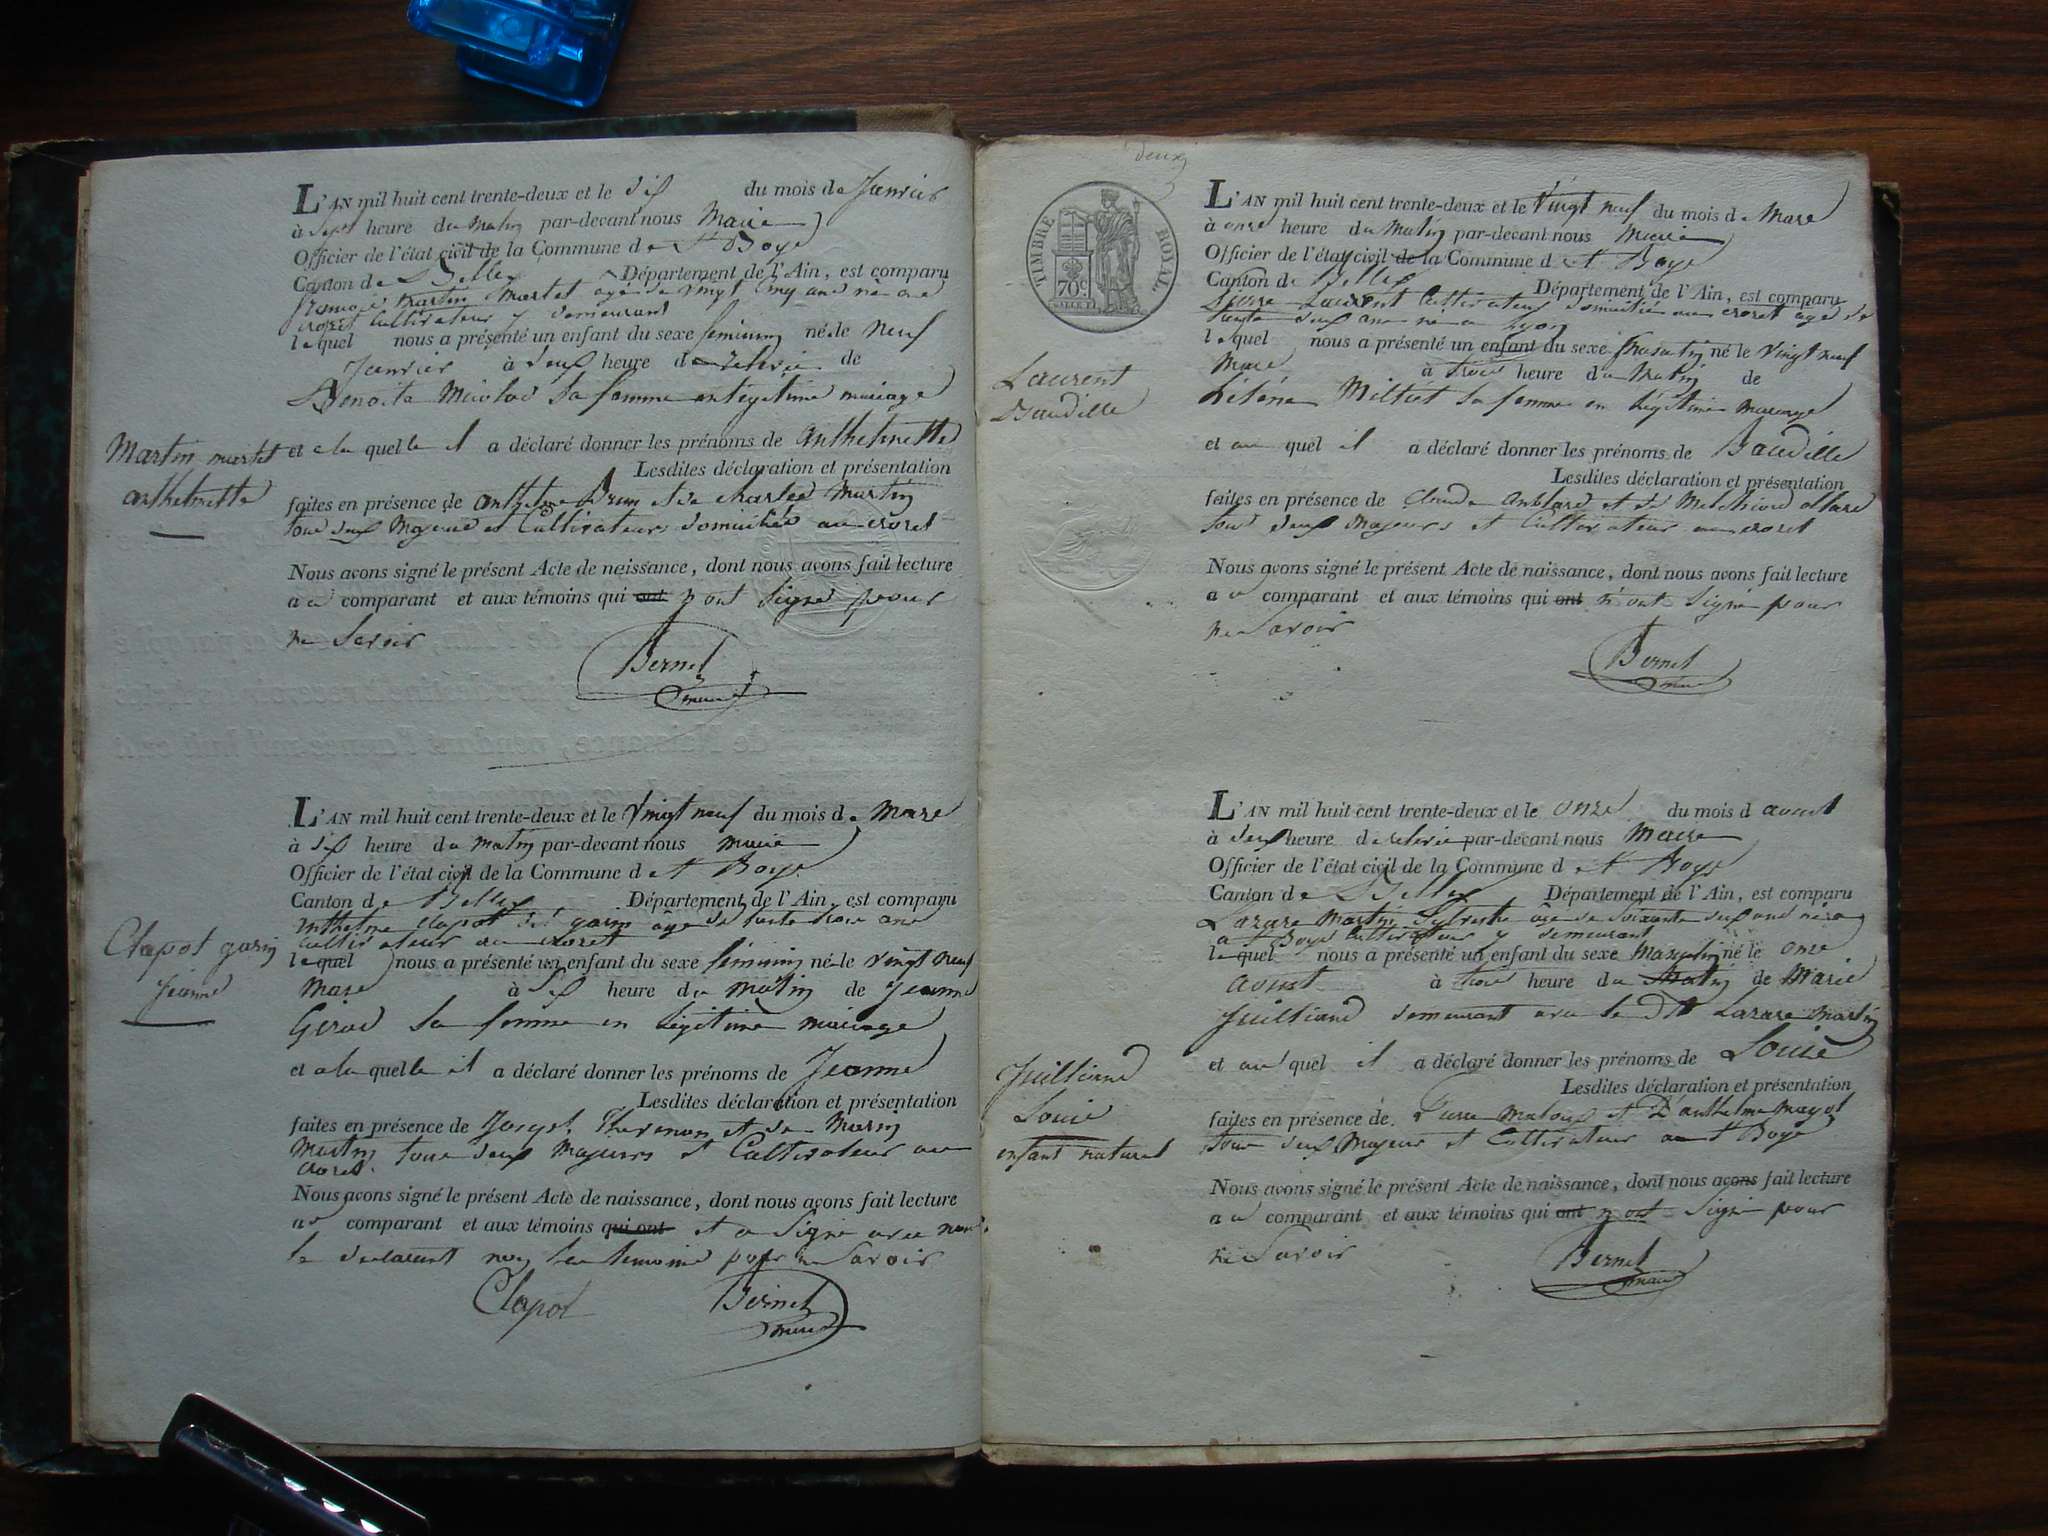 L'AN mil huit cent trente-deux et le dix du mois de Janvier
à Sept heure du Matin par-devant nous Maire
Officier de l'état civil de la Commune de St Boys
Canton de Belley Département de l'Ain, est comparu
Martin Martet agé de vingt cinq ans né au
croset Cultivateur y demeurant
lequel nous a présenté un enfant du sexe feminin né le neuf
Janvier à deux heure de relevée de
Benoite sa femme en legitime mariage
Martin martet
anthelmette
et a la quelle il a déclaré donner les prénoms de anthelmette
Lesdites déclaration et présentation
faites en présence de anthelme Brun et de charles Martin
tous deux Majeurs et Cultivateurs domiciliés au croset
Nous avons signé le présent Acte de naissance, dont nous avons fait lecture
au comparant et aux témoins qui ont n'ont Signé pour
ne Savoir
Bernet
maire
L'AN mil huit cent trente-deux et le vingt neuf du mois de Mars
à dix heure du matin par-devant nous maire
Officier de l'état civil de la Commune de St Boys
Canton de Belley Département de l'Ain, est comparu
anthelme clapot dit garin âgé de trente trois ans
cultivateur au croset
Clapot garin
Jeanne
lequel nous a présenté un enfant du sexe féminin né le vingt neuf
Mars à Six heure du matin de Jeanne
Girod sa femme en légitime mariage
et a la quelle il a déclaré donner les prénoms de Jeanne
Lesdites déclaration et présentation
faites en présence de Joseph et de Marin
Martin tous deux Majeurs et Cultivateur au
croset.
Nous avons signé le présent Acte de naissance, dont nous avons fait lecture
au comparant et aux témoins qui ont et a Signé avec nous
le declarant non les temoins pour ne Savoir
Clapot Bernet
maire
deux
TIMBRE ROYAL
70c
L'AN mil huit cent trente-deux et le vingt neuf du mois de Mars
à onze heure du Matin par-devant nous maire
Officier de l'état civil de la Commune d St Boys
Canton de Belley Département de l'Ain, est comparu
Pierre Laurent Cultivateur domicilié au croset âgé de
trente deux ans né a Lyon
lequel nous a présenté un enfant du sexe Masculin né le vingt neuf
Mars à trois heure du Matin de
Laurent
Baudille
sa femme en légitime mariage
et au quel il a déclaré donner les prénoms de Baudille
Lesdites déclaration et présentation
faites en présence de Claude et de Melchior
tous deux majeurs et Cultivateur au croset
Nous avons signé le présent Acte de naissance, dont nous avons fait lecture
au comparant et aux témoins qui ont n'ont Signé pour
ne Savoir
Bernet
maire
L'AN mil huit cent trente-deux et le onze du mois d avout
à deux heure de relevée par-devant nous Maire
Officier de l'état civil de la Commune de St Boys
Canton de Belley Département de l'Ain, est comparu
Lazare Martin Sylvestre âgé de soixante deux ans né
a St Boys Cultivateur y demeurant
lequel nous a présenté un enfant du sexe Masculin né le onze
avout à trois heure du Matin de Marie
Juilliand demeurant avec le dit Lazare Martin
Juilliand
Louis
enfant naturel
et au quel il a déclaré donner les prénoms de Louis
Lesdites déclaration et présentation
faites en présence de Pierre et D'anthelme
tous deux Majeur et Cultivateur a St Boys
Nous avons signé le présent Acte de naissance, dont nous avons fait lecture
au comparant et aux témoins qui ont n'ont Signé pour
ne Savoir
Bernet
maire